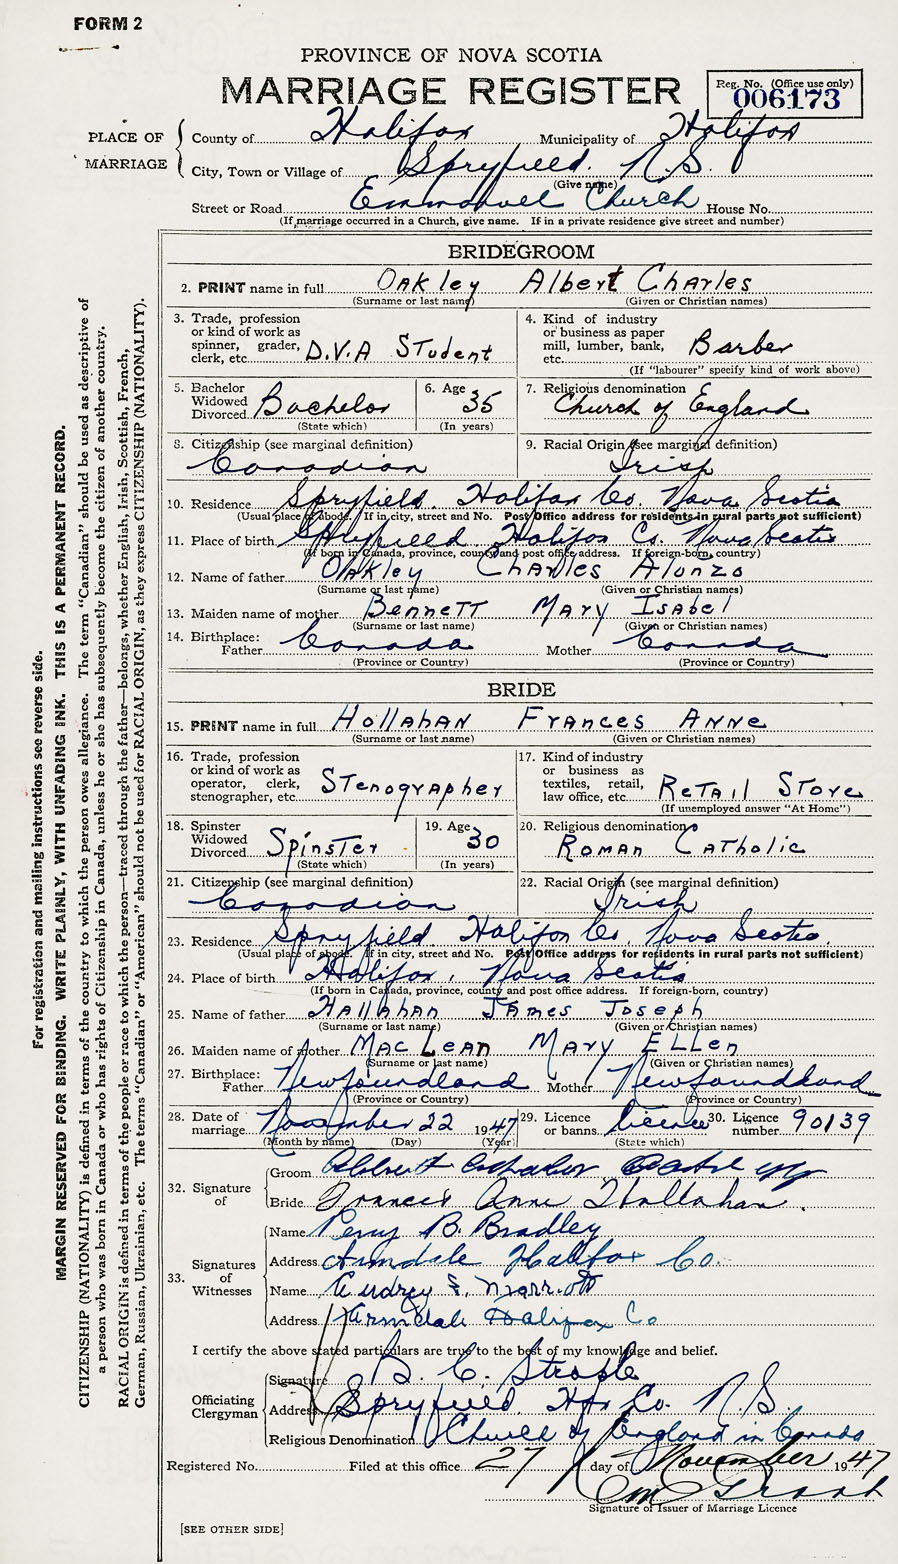 FORM 2
PROVINCE OF NOVA SCOTIA
MARRIAGE REGISTER
Reg. No. (Office use only)
006173
PLACE OF MARRIAGE
County of Halifax Municipality of Halifax
City, Town or Village of Spryfield. N.S.
(Give name)
Street or Road Emmanuel Church House No.
(If marriage occurred in a Church, give name. If in a private residence give street and number)
BRIDEGROOM
2. PRINT name in full Oakley Albert Charles
(Surname or last name) (Given or Christian names)
3. Trade, profession or kind of work as spinner, grader, clerk, etc. D.V.A Student
4. Kind of industry or business as paper mill, lumber, bank, etc. Barber
(If "labourer" specify kind of work above)
5. Bachelor Widowed Divorced Bachelor
(State which)
6. Age 35
(In years)
7. Religious denomination
Church of England
8. Citizenship (see marginal definition)
Canadian
9. Racial Origin (see marginal definition)
Irish
10. Residence Spryfield. Halifax Co. Nova Scotia
(Usual place of abode. If in city, street and No. Post Office address for residents in rural parts not sufficient)
11. Place of birth Spryfield Halifax Co. Nova Scotia
(If born in Canada, province, county and post office address. If foreign-born, country)
12. Name of father Oakley Charles Alonzo
(Surname or last name) (Given or Christian names)
13. Maiden name of mother Bennett Mary Isabel
(Surname or last name) (Given or Christian names)
14. Birthplace: Father Canada Mother Canada
(Province or Country) (Province or Country)
BRIDE
15. PRINT name in full Hollahan Frances Anne
(Surname or last name) (Given or Christian names)
16. Trade, profession or kind of work as operator, clerk, stenographer, etc. Stenographer
17. Kind of industry or business as textiles, retail, law office, etc. Retail Store
(If unemployed answer "At Home")
18. Spinster Widowed Divorced Spinster
(State which)
19. Age 30
(In years)
20. Religious denomination
Roman Catholic
21. Citizenship (see marginal definition)
Canadian
22. Racial Origin (see marginal definition)
Irish
23. Residence Spryfield Halifax Co. Nova Scotia.
(Usual place of abode. If in city, street and No. Post Office address for residents in rural parts not sufficient)
24. Place of birth Halifax, Nova Scotia
(If born in Canada, province, county and post office address. If foreign-born, country)
25. Name of father Hallahan James Joseph
(Surname or last name) (Given or Christian names)
26. Maiden name of mother MacLean Mary Ellen
(Surname or last name) (Given or Christian names)
27. Birthplace: Father Newfoundland Mother Newfoundland
(Province or Country) (Province or Country)
28. Date of marriage November 22 1947
(Month by name) (Day) (Year)
29. Licence or banns licence
(State which)
30. Licence number 90139
32. Signature of
Groom Albert Charles Oakley
Bride Frances Anne Hallahan.
33. Signatures of Witnesses
Name Percy B. Bradley
Address Armdale Halifax Co.
Name Audrey E. Marriott
Address Armdale Halifax Co
I certify the above stated particulars are true to the best of my knowledge and belief.
Officiating Clergyman
Signature
Address Spryfield. Hfx Co. N.S.
Religious Denomination Church of England in Canada
Registered No. Filed at this office 27 day of November 1947
Signature of Issuer of Marriage Licence
[SEE OTHER SIDE]
For registration and mailing instructions see reverse side.
MARGIN RESERVED FOR BINDING. WRITE PLAINLY, WITH UNFADING INK. THIS IS A PERMANENT RECORD.
CITIZENSHIP (NATIONALITY) is defined in terms of the country to which the person owes allegiance. The term "Canadian" should be used as descriptive of
a person who was born in Canada or who has rights of Citizenship in Canada, unless he or she has subsequently become the citizen of another country.
RACIAL ORIGIN is defined in terms of the people or race to which the person—traced through the father—belongs, whether English, Irish, Scottish, French,
German, Russian, Ukrainian, etc. The terms "Canadian" or "American" should not be used for RACIAL ORIGIN, as they express CITIZENSHIP (NATIONALITY).